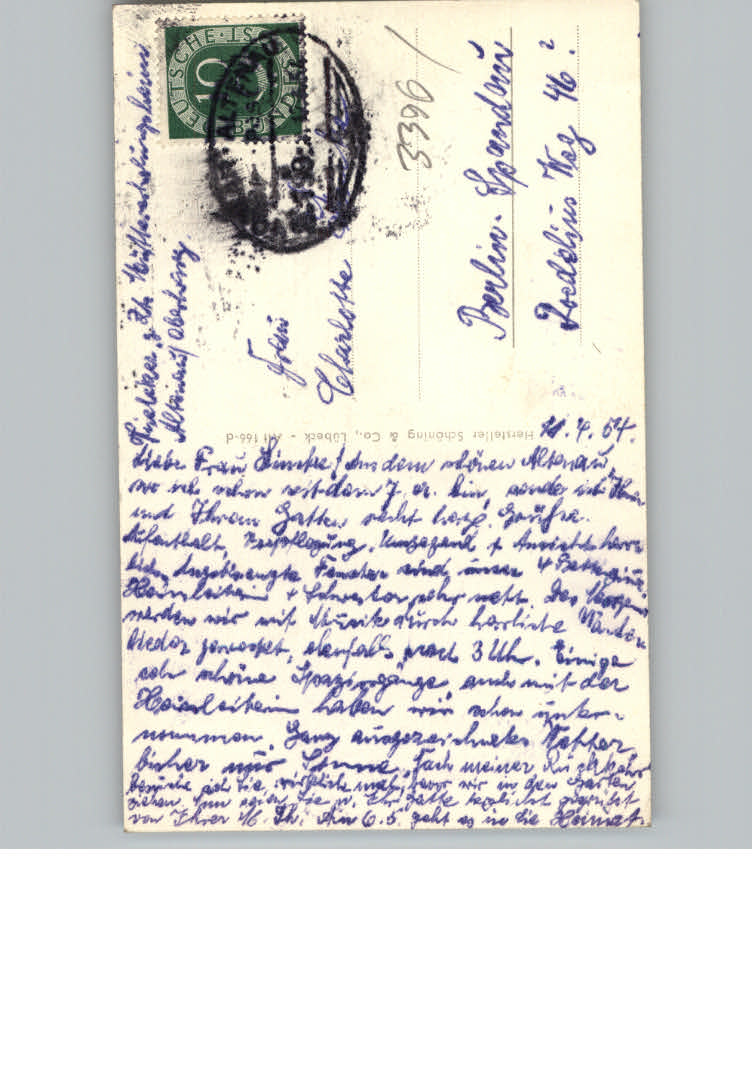 z. Zt. Müttererholungsheim
Altenau/Oberharz.
DEUTSCHE BUNDESPOST
10
ALTENAU
3396
Frau
Charlotte
Berlin-Spandau
Weg 46?
Hersteller Schöning & Co., Lübeck - Alt 166-d
4. 54.
Liebe Frau Aus dem schönen Altenau,
wo ich schon seit dem 7. bin, sende ich Ihnen
und Ihrem Gatten recht herzl. Grüße.
Aufenthalt, Verpflegung, Umgegend + Ansicht herr-
lich. Fenster sind unser 4 Bettzimmer
Heimleiterin + Schwester sehr nett. Des Morgens
werden wir mit Musik durch herrliche Wander-
lieder geweckt, ebenfalls nach 3 Uhr. Einige
sehr schöne Spaziergänge, auch mit der
Heimleiterin haben wir schon unter-
nommen. Ganz ausgezeichnetes Wetter,
bisher nur Sonne. Nach meiner Rückkehr
besuche ich Sie wirklich mal, bevor wir in den Garten
ziehen. Nun seien Sie u. Ihr Gatte herzlichst gegrüßt
von Ihrer M. Th. Am 6.5. geht es in die Heimat.